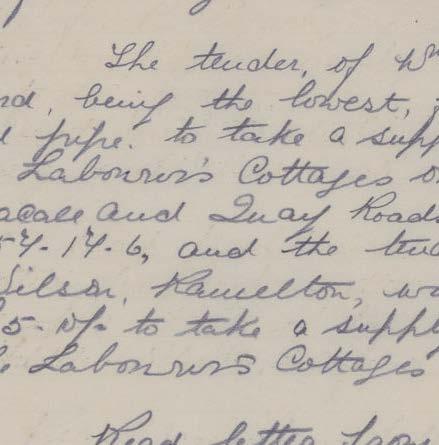 The tender, of Wm
rd, being the lowest,
d pipe. to take a supp
Labourer's Cottages o
and Quay Roads
57-17-6, and the ten
Wilson, Ramelton, wa
5-0/- to take a supply
e Labourers Cottages
Read letter from